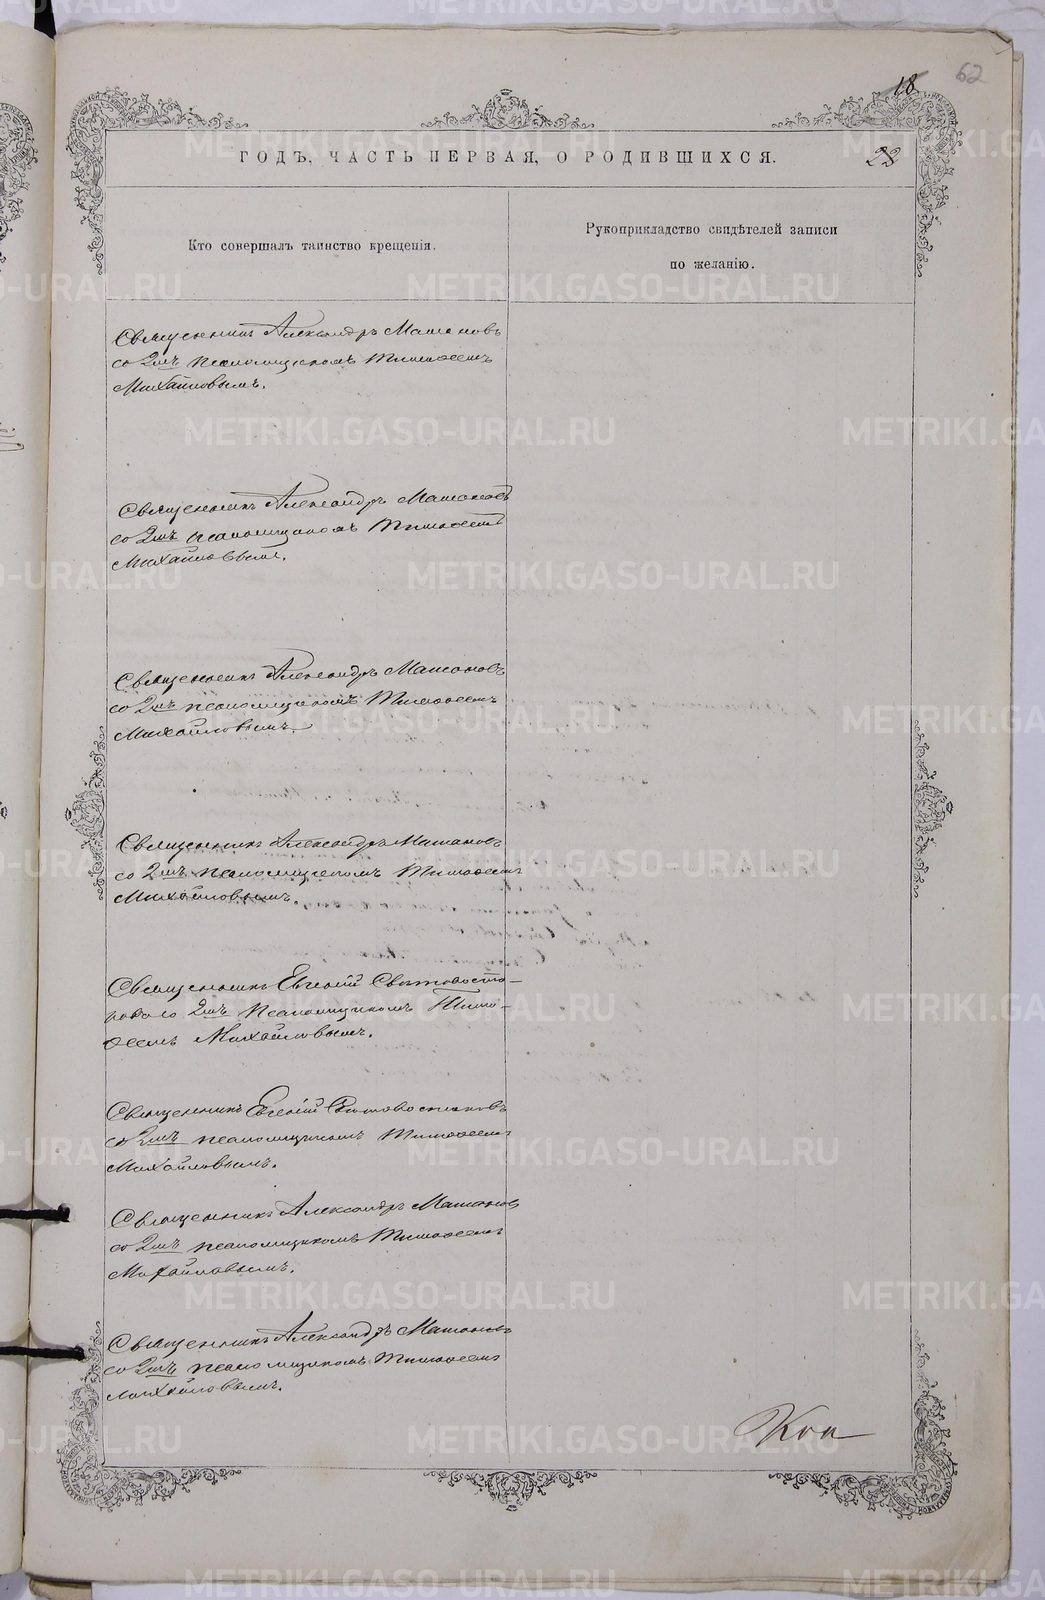 62
18
ГОДЪ, ЧАСТЬ ПЕРВАЯ, О РОДИВШИХСЯ.
22
Кто совершалъ таинство крещенія.
Рукоприкладство свидѣтелей записи
по желанію.
Священникъ Александръ Матановъ
со 2мъ псаломщикомъ Тимоѳеемъ
Михайловымъ.
Священникъ Александръ Матановъ
со 2мъ псаломщикомъ Тимоѳеемъ
Михайловымъ.
Священникъ Александръ Матановъ
со 2мъ псаломщикомъ Тимоѳеемъ
Михайловымъ.
Священникъ Александръ Матановъ
со 2мъ псаломщикомъ Тимоѳеемъ
Михайловымъ.
Священникъ Евгеній
со 2мъ Псаломщикомъ Тимо-
ѳеемъ Михайловымъ.
Священникъ Евгеній
со 2мъ псаломщикомъ Тимоѳеемъ
Михайловымъ.
Священникъ Александръ Матановъ
со 2мъ псаломщикомъ Тимоѳеемъ
Михайловымъ.
Священникъ Александръ Матановъ
со 2мъ псаломщикомъ Тимоѳеемъ
Михайловымъ.
METRIKI.GASO-URAL.RU